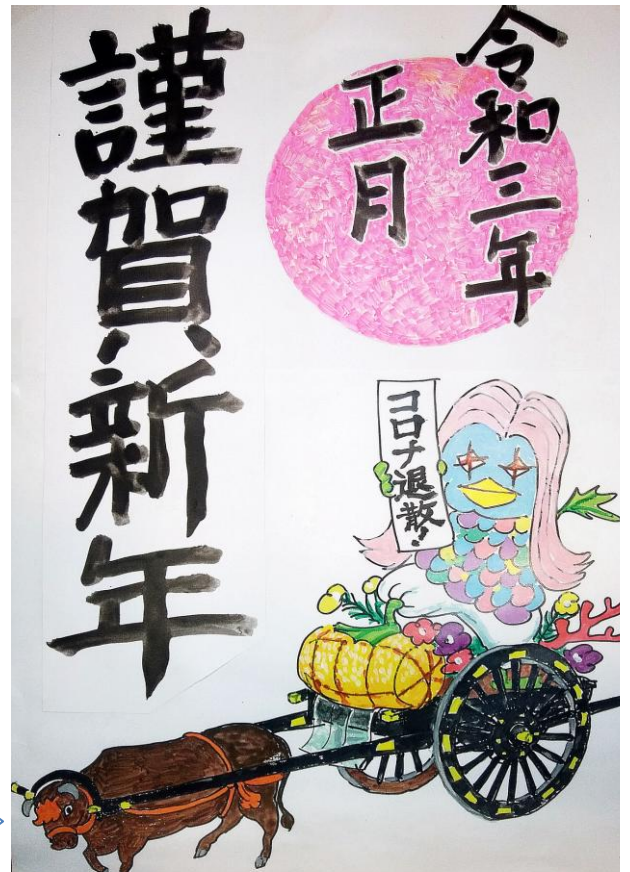 令和三年
正月
謹賀新年
コロナ退散!